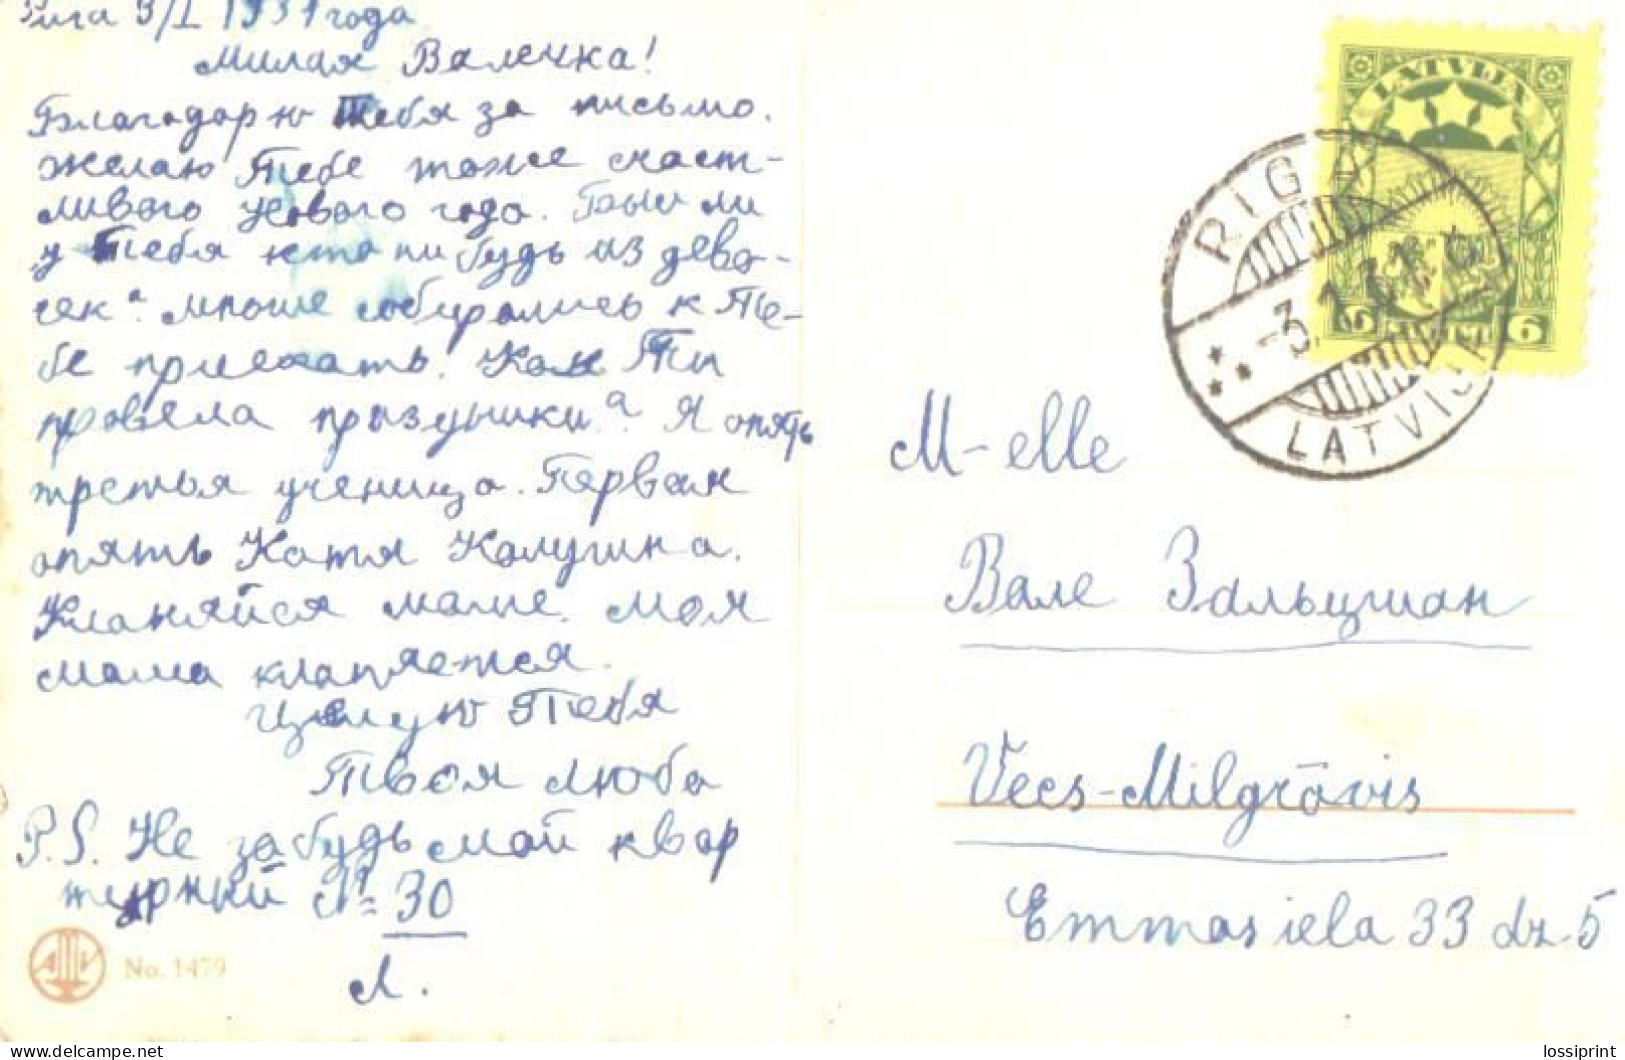 Рига 3/I 1931 года
Милая Валечка!
Благодарю Тебя за письмо.
Желаю Тебе тоже счаст-
ливого Нового года. Был ли
у Тебя кто нибудь из дево-
чек? Многие собирались к Те-
бе приехать! Как Ты
провела праздники? Я опять
третья ученица. Первая
опять Катя Калугина.
Кланяйся маме. Моя
мама кланяется.
Целую Тебя
Твоя Люба
P.S. Не забудь мой квар
тирный № 30
Л.
No. 1479
LATVIJA
6 6
RIGA
-3. 1. 31
LATVIJA
M-elle
Вале Зальцман
Vecs-Milgrāvis
Emmas iela 33 dz. 5
lossiprint
https://www.delcampe.net